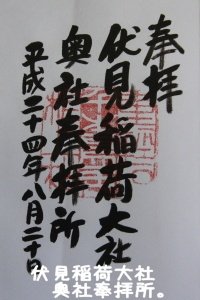 奉拝
伏見稲荷大社
奥社奉拝所
平成二十四年八月二十日
伏見稲荷大社
奥社奉拝所。